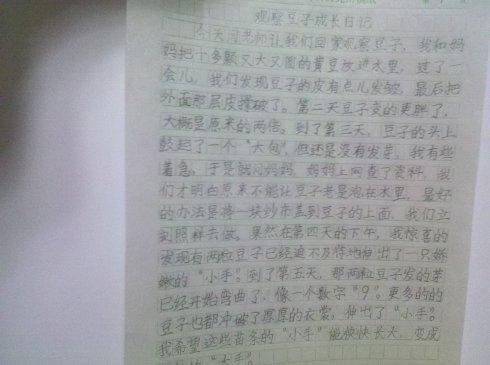 观察豆子成长日记
今天闫老师让我们回家观察豆子，我和妈
妈把十多颗又大又圆的黄豆放进水里，过了一
会儿，我们发现豆子的皮有点儿发皱，最后把
外面那层皮撑破了。第二天豆子变的更胖了，
大概是原来的两倍。到了第三天，豆子的头上
鼓起了一个“大包”，但还是没有发芽，我有些
着急。于是就问妈妈，妈妈上网查了资料，我
们才明白原来不能让豆子老是泡在水里，最好
的办法是将一块纱布盖到豆子的上面，我们立
刻照样去做。果然在第四天的下午，我惊喜的
发现有两粒豆子已经迫不及待地伸出了一只娇
嫩的“小手”。到了第五天，那两粒豆子发的芽
已经开始弯曲了，像一个数字“9”。更多的的
豆子也都冲破了厚厚的衣裳，伸出了“小手”。
我希望这些苗条的“小手”能快快长大，变成
的“大手”